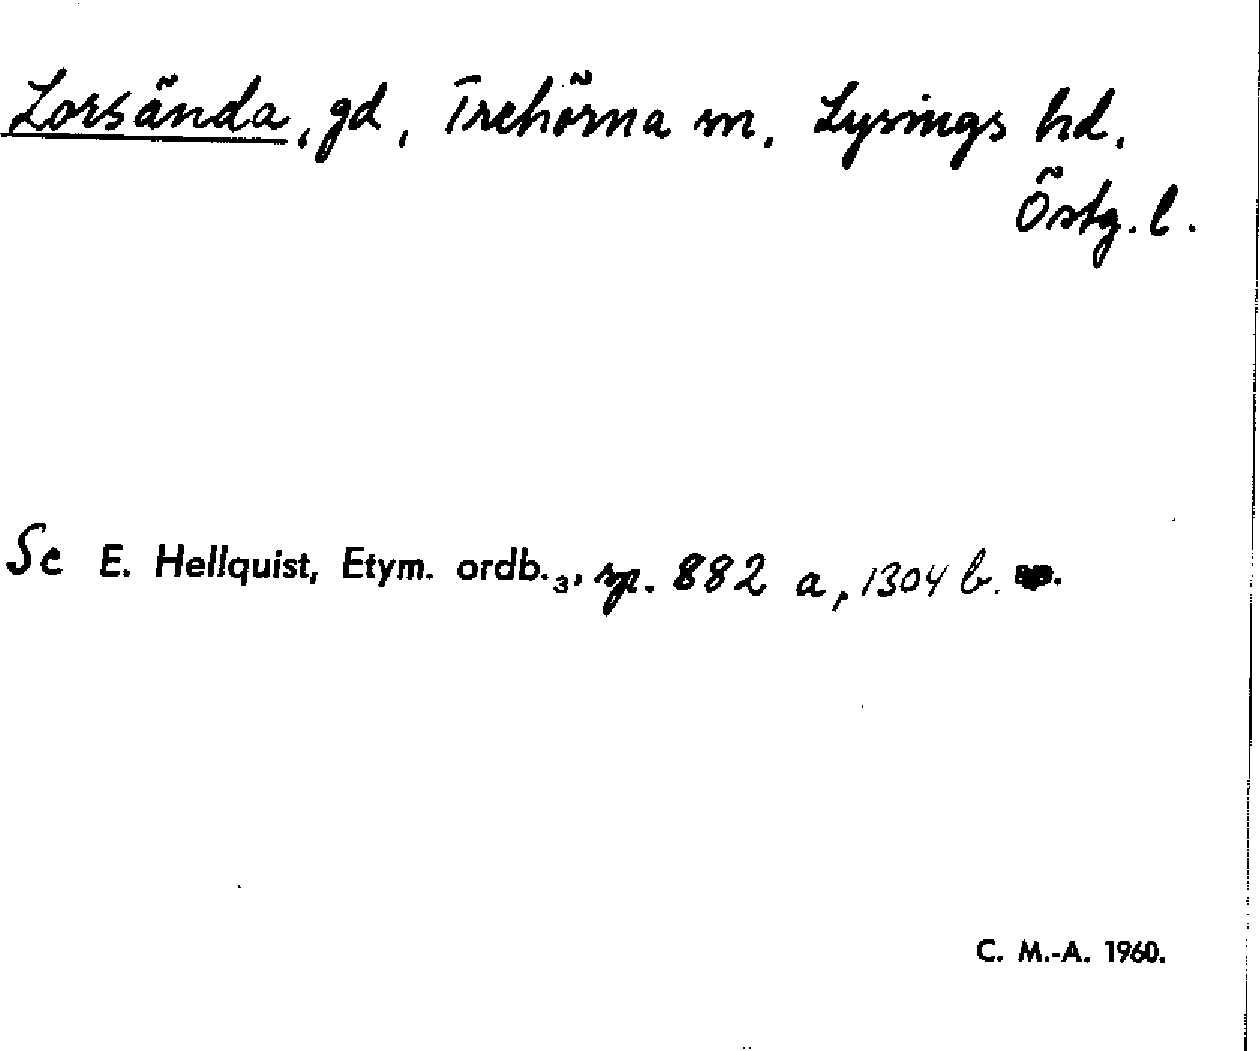 Lorsända, gd, Trehörna sn, Lysings hd,
Östg. l.
Se E. Hellquist, Etym. ordb.₃, sp. 882 a, 1304 b.
C. M.-A. 1960.